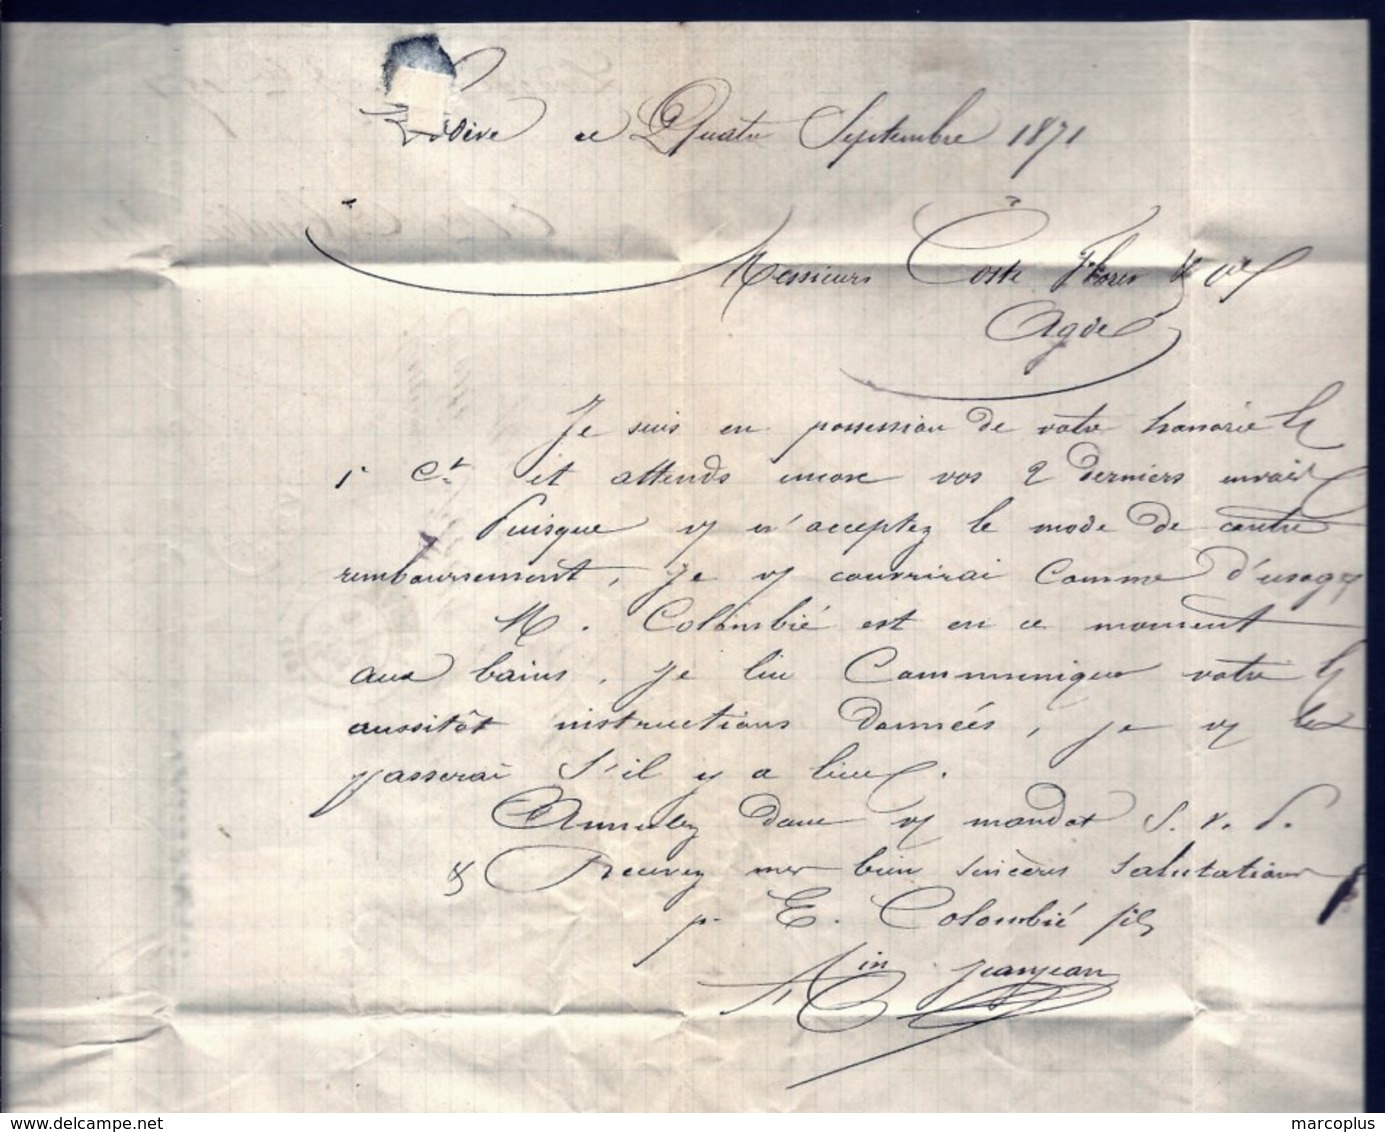 Lodève ce Quatre Septembre 1871
Messieurs Coste Flores & Cie
Agde
Je suis en possession de votre honorée L
1r Ct et attends encore vos 2 derniers envois
Puisque v/ n'acceptez le mode de contre
remboursement, je v/ couvrirai comme d'usage
M. Colombié est en ce moment
aux bains, je lui communique votre L/
aussitôt instructions données, je v/ les
passerai s'il y a lieu.
Annulez donc v/ mandat S. V. P.
& Recevez mes bien sincères salutations
p. E. Colombié fils
Ain Jeanjean
marcoplus
www.delcampe.net